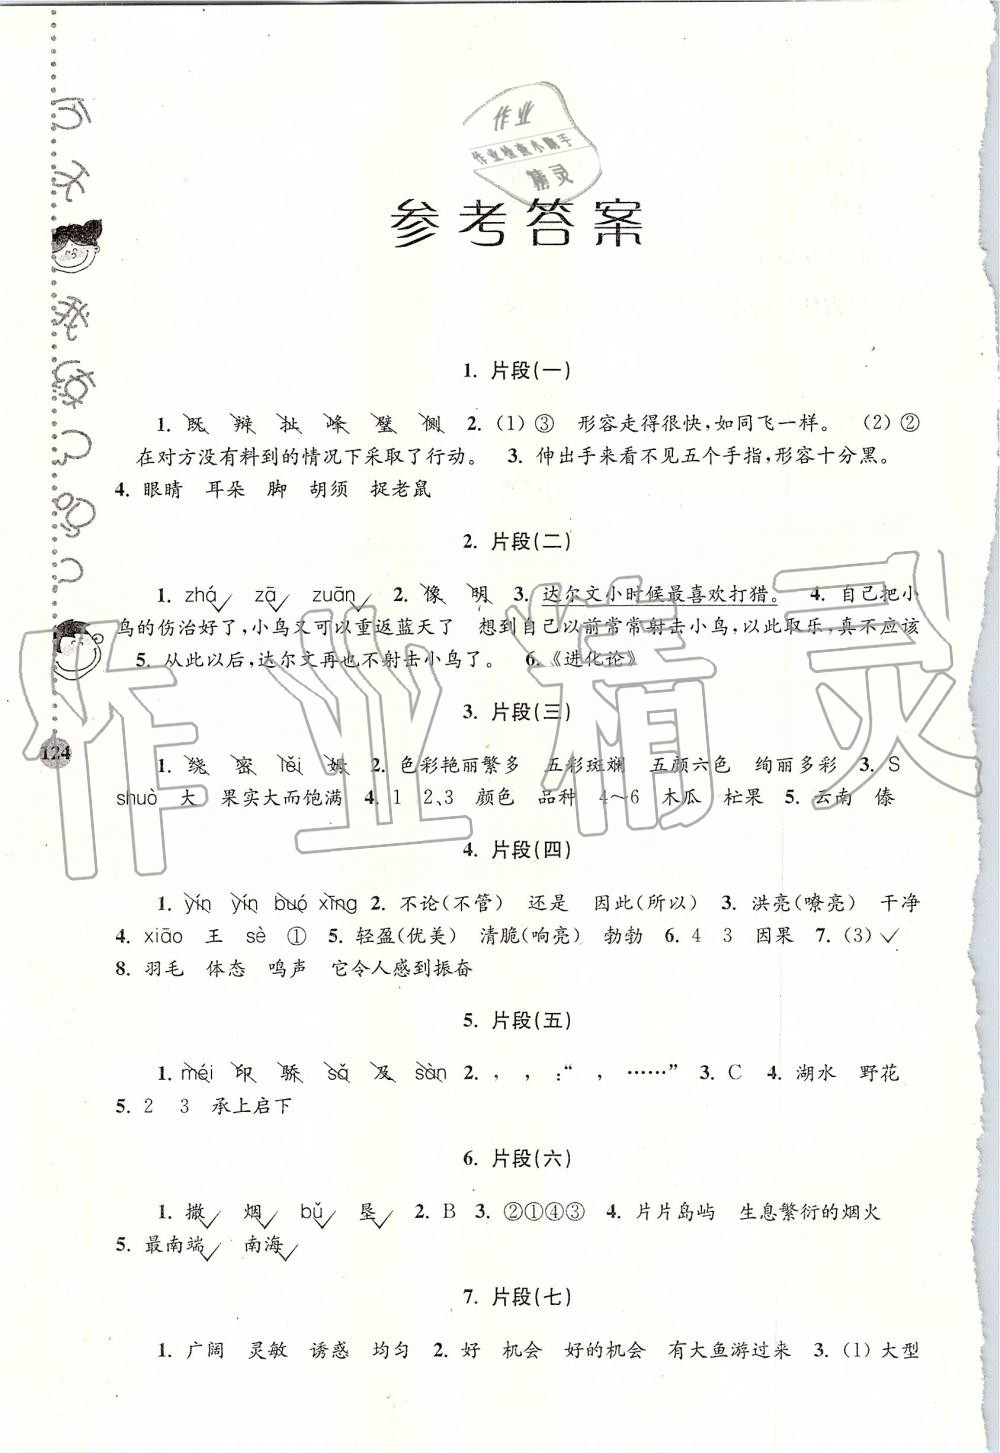 作业
作业检查小助手
精灵
参考答案
1. 片段(一)
1. 既 辩 扯 峰 璧 侧 2. (1) ③ 形容走得很快,如同飞一样。 (2) ②
在对方没有料到的情况下采取了行动。 3. 伸出手来看不见五个手指,形容十分黑。
4. 眼睛 耳朵 脚 胡须 捉老鼠
2. 片段(二)
1. zhá zā zuān 2. 像 明 3. 达尔文小时候最喜欢打猎。 4. 自己把小
鸟的伤治好了,小鸟又可以重返蓝天了 想到自己以前常常射击小鸟,以此取乐,真不应该
5. 从此以后,达尔文再也不射击小鸟了。 6.《进化论》
3. 片段(三)
1. 绕 密 lěi 姆 2. 色彩艳丽繁多 五彩斑斓 五颜六色 绚丽多彩 3. S
shuò 大 果实大而饱满 4. 1 2、3 颜色 品种 4～6 木瓜 杧果 5. 云南 傣
4. 片段(四)
1. yín yín buó xīng 2. 不论(不管) 还是 因此(所以) 3. 洪亮(嘹亮) 干净
4. xiāo 王 sè ① 5. 轻盈(优美) 清脆(响亮) 勃勃 6. 4 3 因果 7. (3) ✓
8. 羽毛 体态 鸣声 它令人感到振奋
5. 片段(五)
1. méi 印 骄 sǎ 及 sàn 2. , , :“ , ……” 3. C 4. 湖水 野花
5. 2 3 承上启下
6. 片段(六)
1. 撒 烟 bǔ 垦 2. B 3. ②①④③ 4. 片片岛屿 生息繁衍的烟火
5. 最南端 南海
7. 片段(七)
1. 广阔 灵敏 诱惑 均匀 2. 好 机会 好的机会 有大鱼游过来 3. (1) 大型
124
作业精灵